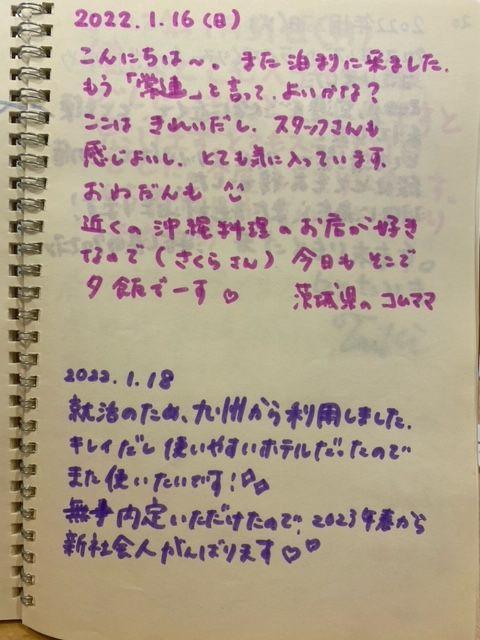 2022.1.16(日)
こんにちは〜。また泊まりに来ました.
もう「常連」と言って、よいかな?
ここは きれいだし、スタッフさんも
感じよいし、とても気に入っています.
おねだんも
近くの 沖縄料理のお店が好き
なので(さくらさん)今日も そこで
夕飯でーす♡ 茨城県の コムママ
2022.1.18
就活のため、九州から利用しました.
キレイだし 使いやすいホテルだったので
また 使いたいです!
無事内定いただけたので、2023年春から
新社会人がんばります♡